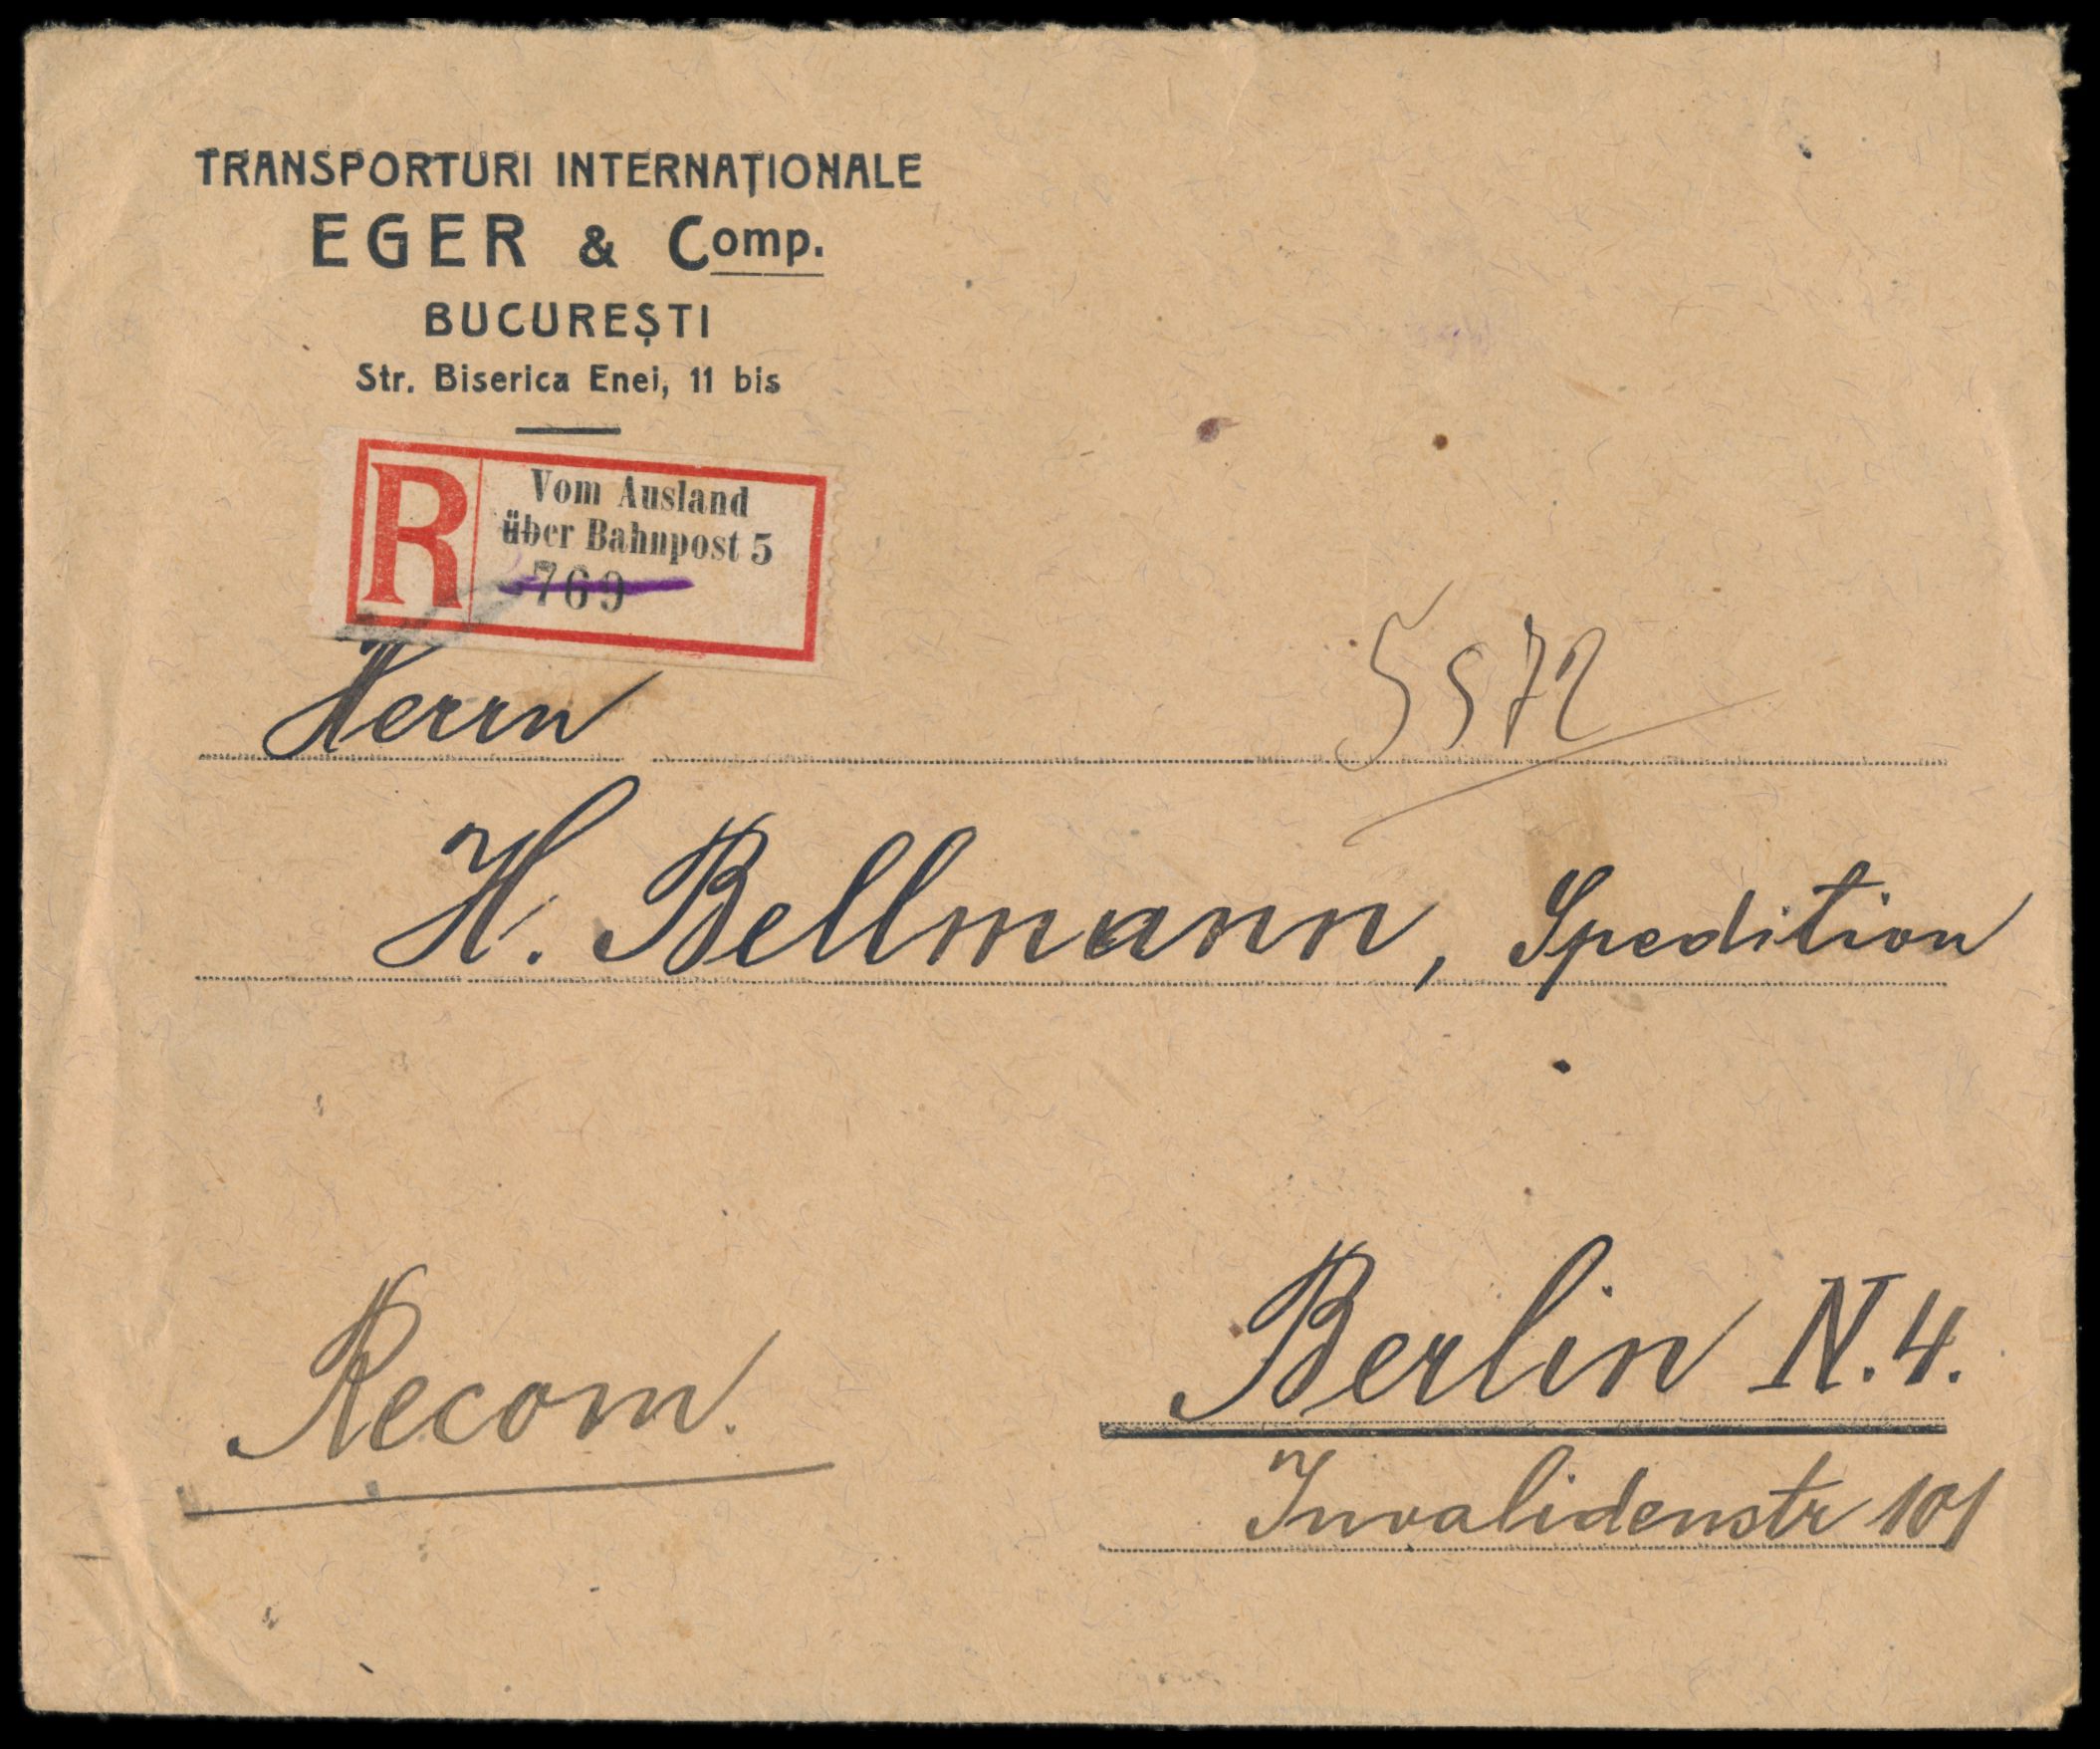 TRANSPORTURI INTERNAȚIONALE
EGER & Comp.
BUCUREȘTI
Str. Biserica Enei, 11 bis
R
Vom Ausland
über Bahnpost 5
769
5972
Herrn
H. Bellmann, Spedition
Recom.
Berlin N.4.
Invalidenstr 101